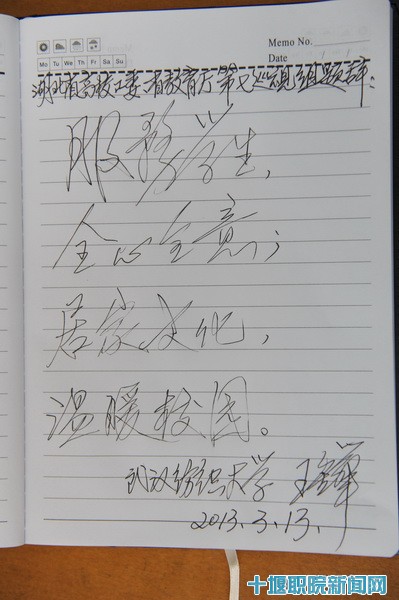 Memo No.
Mo Tu We Th Fr Sa Su
Date
湖北省高校工委、省教育厅第七巡视组题辞:
服务学生,
全心全意;
居家文化,
温暖校园。
武汉纺织大学 王
2013.3.13.
十堰职院新闻网